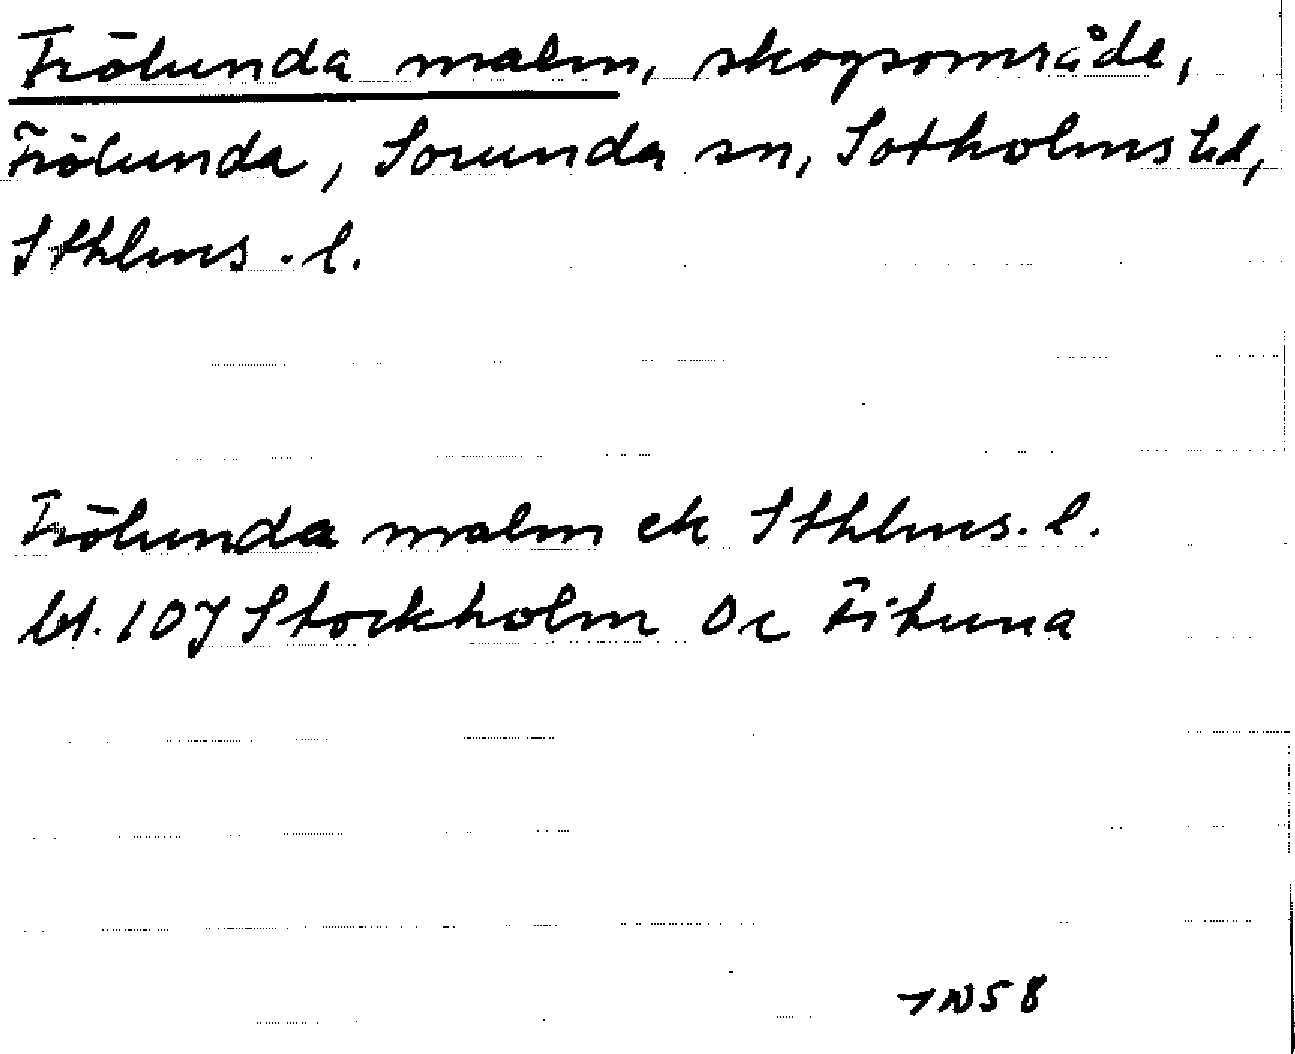 Frölunda malm, skogsområde,
Frölunda, Sorunda sn, Sotholms hd,
Sthlms. l.
Frölunda malm ek Sthlms. l.
bl. 107 Stockholm Oc Fituna
N58